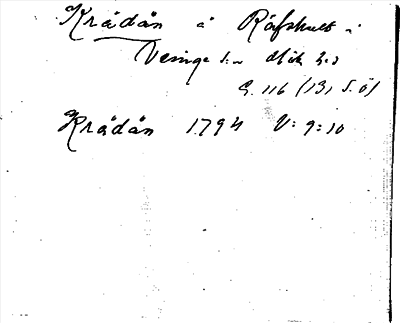 Krådån å Räfshult i
Veinge s:n Hök h:d
G. 116 (13, S. Ö)
Krådån 1794 V: 9: 10